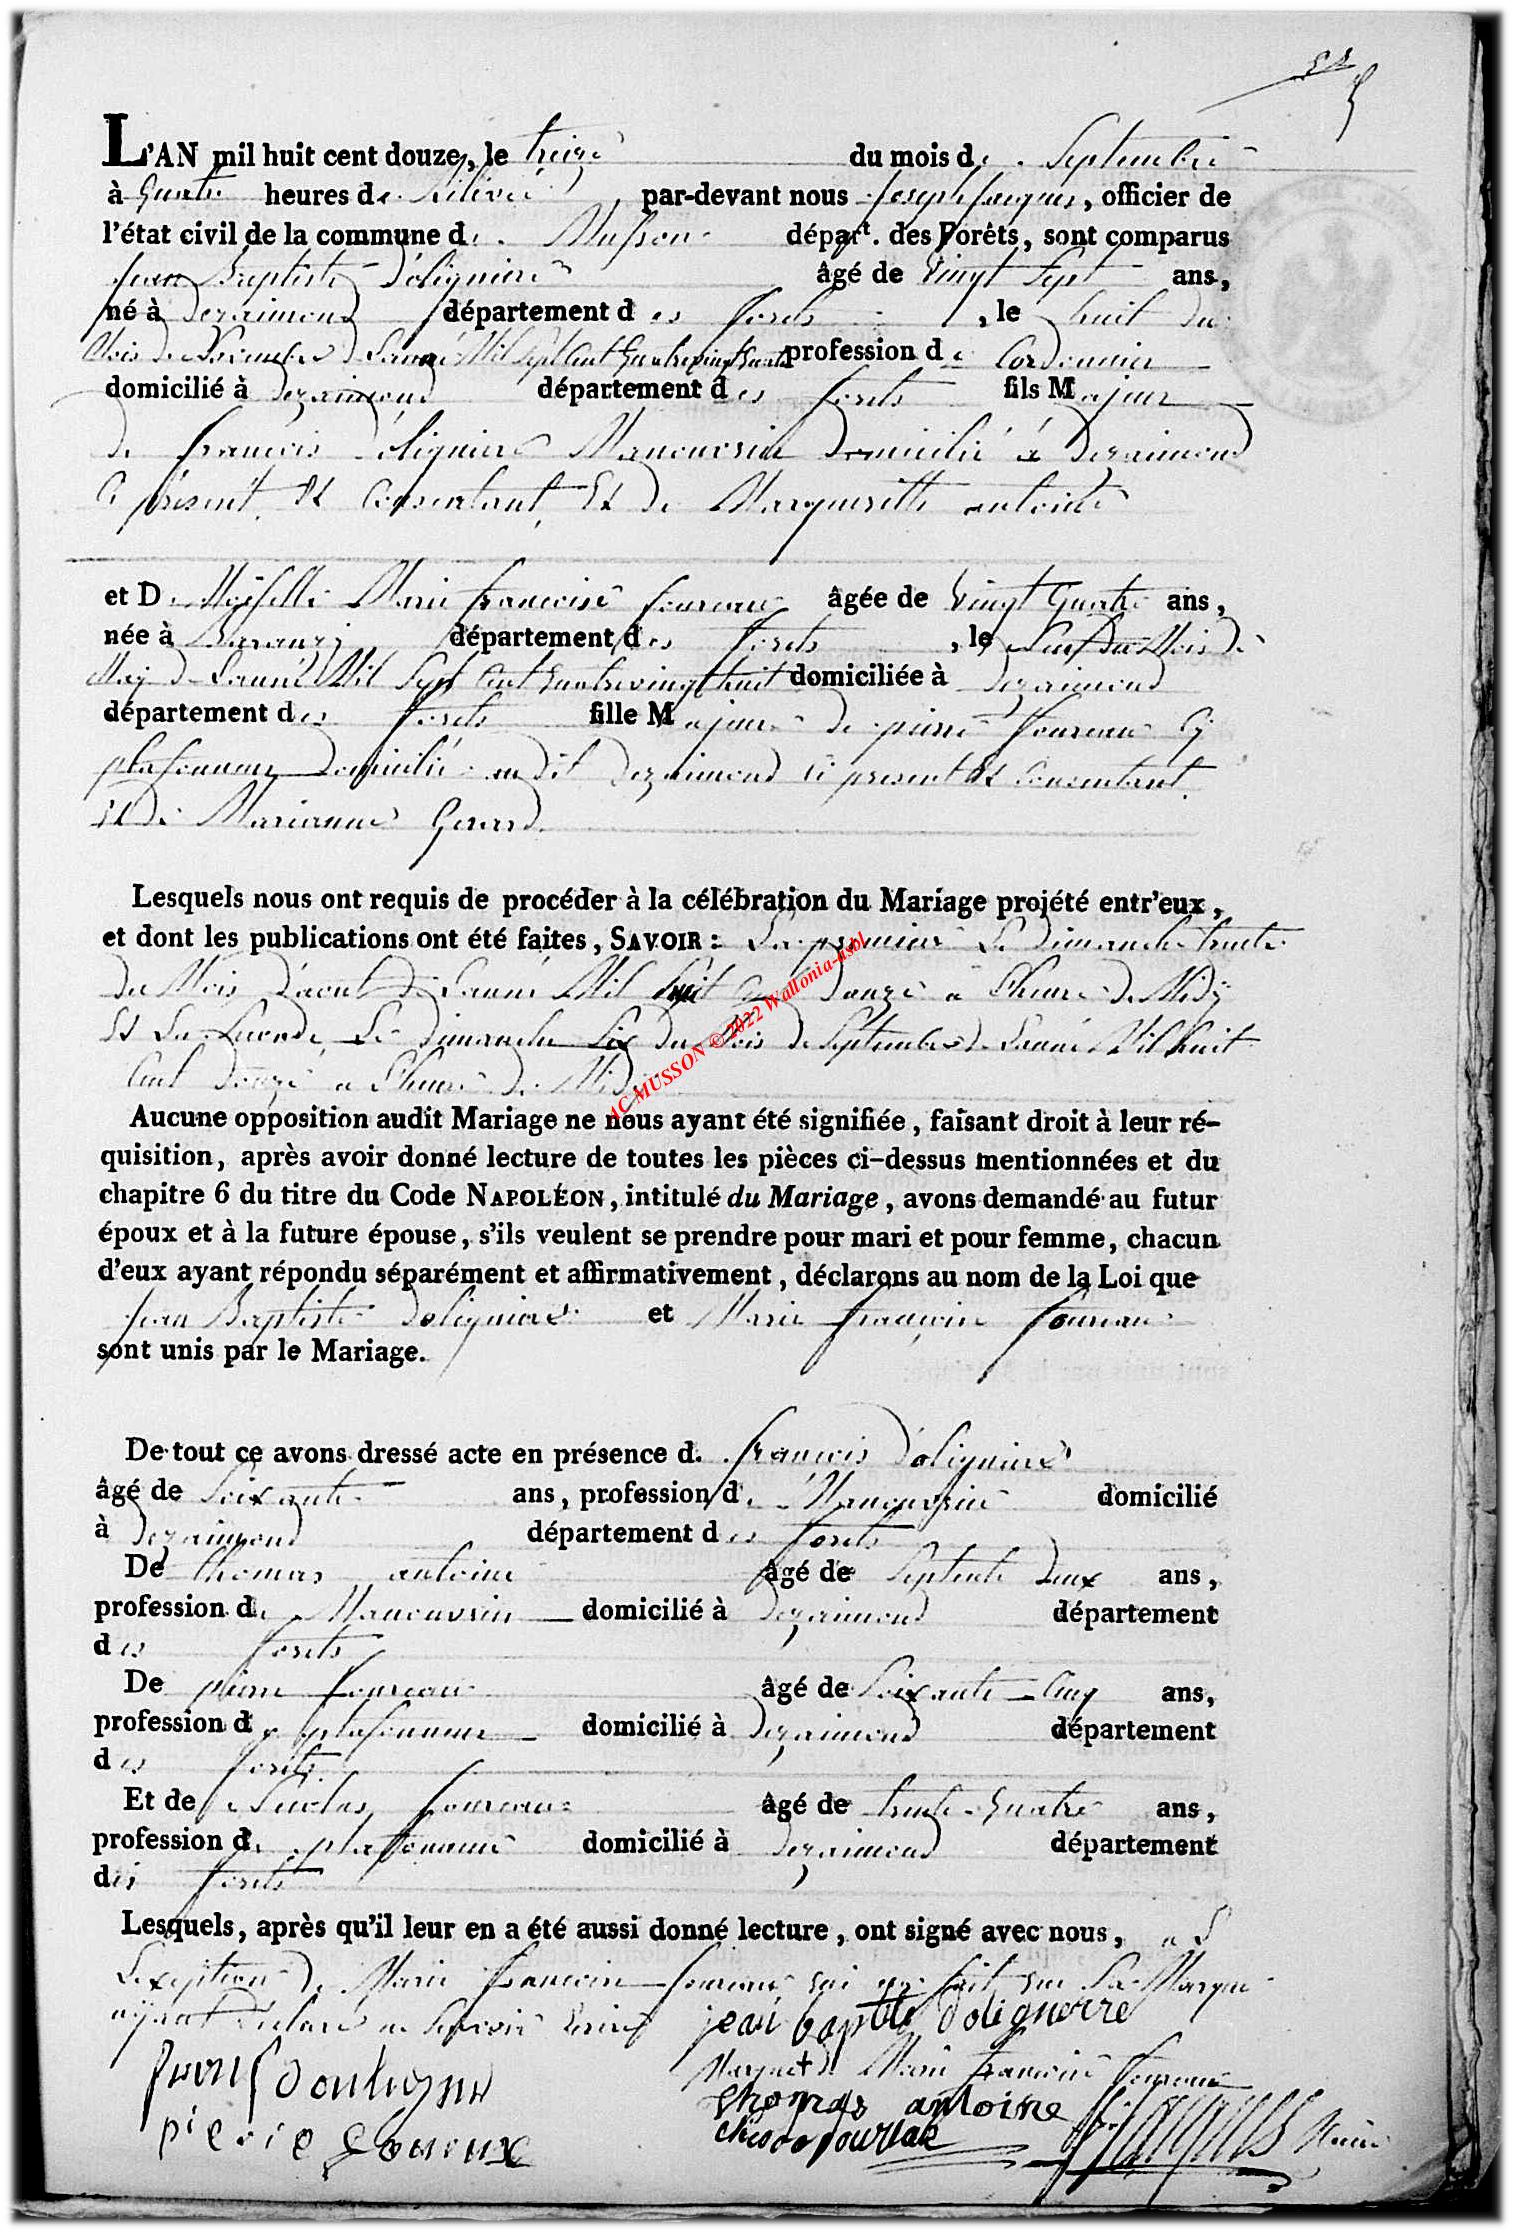 L'AN mil huit cent douze, le treize du mois de Septembre
à Quatre heures de Relevée par-devant nous Joseph Jacques, officier de
l'état civil de la commune de Musson départ. des Forêts, sont comparus
Jean Baptiste Doligniere âgé de Vingt Sept ans,
né à dezaimond département des forets, le huit du
Mois de l'année Mil Sept Cent Quatre vingt quatre profession de Cordonnier
domicilié à dezaimond département des forets fils Majeur
de francois doligniere Manouvrier domicilié à dezaimond
Ci présent, Et Consentant, Et de Margueritte antoine
et Dle Marie francoise foureau âgée de Vingt Quatre ans,
née à Baranzy département des forets, le du Mois de
Maj de L'année Mil Sept Cent Quatre vingt huit domiciliée à dezaimond
département des forets fille Majeure de pierre foureau
plafonneur domicilié audit dezaimond Ci present Et Consentant.
Et de Marianne Gerard
Lesquels nous ont requis de procéder à la célébration du Mariage projété entr'eux,
et dont les publications ont été faites, SAVOIR: La premiere Le dimanche trente
du Mois d'aout de L'année Mil huit Cent douze a L'heure de Midy
Et La Seconde Le dimanche Six du Mois de Septembre de L'année Mil huit
Cent douze a L'heure de Midy
Aucune opposition audit Mariage ne nous ayant été signifiée, faisant droit à leur ré-
quisition, après avoir donné lecture de toutes les pièces ci-dessus mentionnées et du
chapitre 6 du titre du Code NAPOLÉON, intitulé du Mariage, avons demandé au futur
époux et à la future épouse, s'ils veulent se prendre pour mari et pour femme, chacun
d'eux ayant répondu séparément et affirmativement, déclarons au nom de la Loi que
Jean Baptiste doligniere et Marie francoise foureau
sont unis par le Mariage.
De tout ce avons dressé acte en présence de francois doligniere
âgé de Soixante ans, profession de Manouvrier domicilié
à dezaimond département des forets
De thomas antoine âgé de Septente deux ans,
profession de Manouvrier domicilié à dezaimond département
des forets
De pierre foureau âgé de Soixante Cinq ans,
profession de plafonneur domicilié à dezaimond département
des forets
Et de Nicolas foureau âgé de trente Quatre ans,
profession de plafonneur domicilié à dezaimond département
des forets
Lesquels, après qu'il leur en a été aussi donné lecture, ont signé avec nous, a
L'exeption de Marie francoise foureau qui a fait Sa Marque
ayant declaré ne Savoir Ecrire jean baptite doliguerre
Marque + de Marie francoise foureau
thomas antoine
pierre foureux
AC MUSSON © 2022 Wallonia-asbl